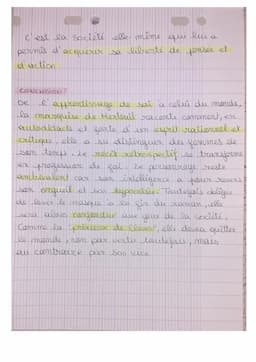 c'est la société elle même qui lui a
permis d'acquérir sa liberté de pensée et
d'action.
Conclusion :
De l'apprentissage de soi à celui du monde,
la marquise de Merteuil raconte comment, en
autodidacte et forte d'un esprit rationnel et
critique, elle a su distinguer des femmes de
son temps. Le récit rétrospectif se transforme
en profession de foi. Le personnage reste
ambivalent car son intelligence a pour revers
son orgueil et son hypocrisie. Toutefois obligée
de lever le masque à la fin du roman, elle
sera ainsi aux yeux de la société.
Comme la princesse de Clèves, elle devra quitter
le monde, non par vertu toutefois, mais
au contraire par son vice.